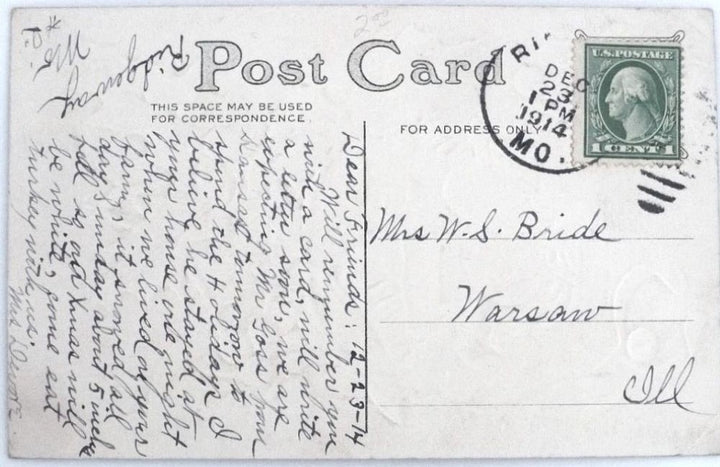 Post Card
THIS SPACE MAY BE USED
FOR CORRESPONDENCE
FOR ADDRESS ONLY
U.S. POSTAGE
1 CENT 1
DEC
23
1 PM
1914
MO.
Mrs W. S. Bride
Warsaw
Ill
Dear Frinds: 12-23-14
Will remember you
with a card, will write
a letter soon, we are
expecting Mr Goss from
Kansas tomorrow to
spend the Holidays I
belive he stayed at
your house one night
when we lived on your
farm, it snowed all
day Sunday about 5 inches
fell so our Xmas will
be white, come eat
turkey with us.
Mrs
Ridgeway
Mo